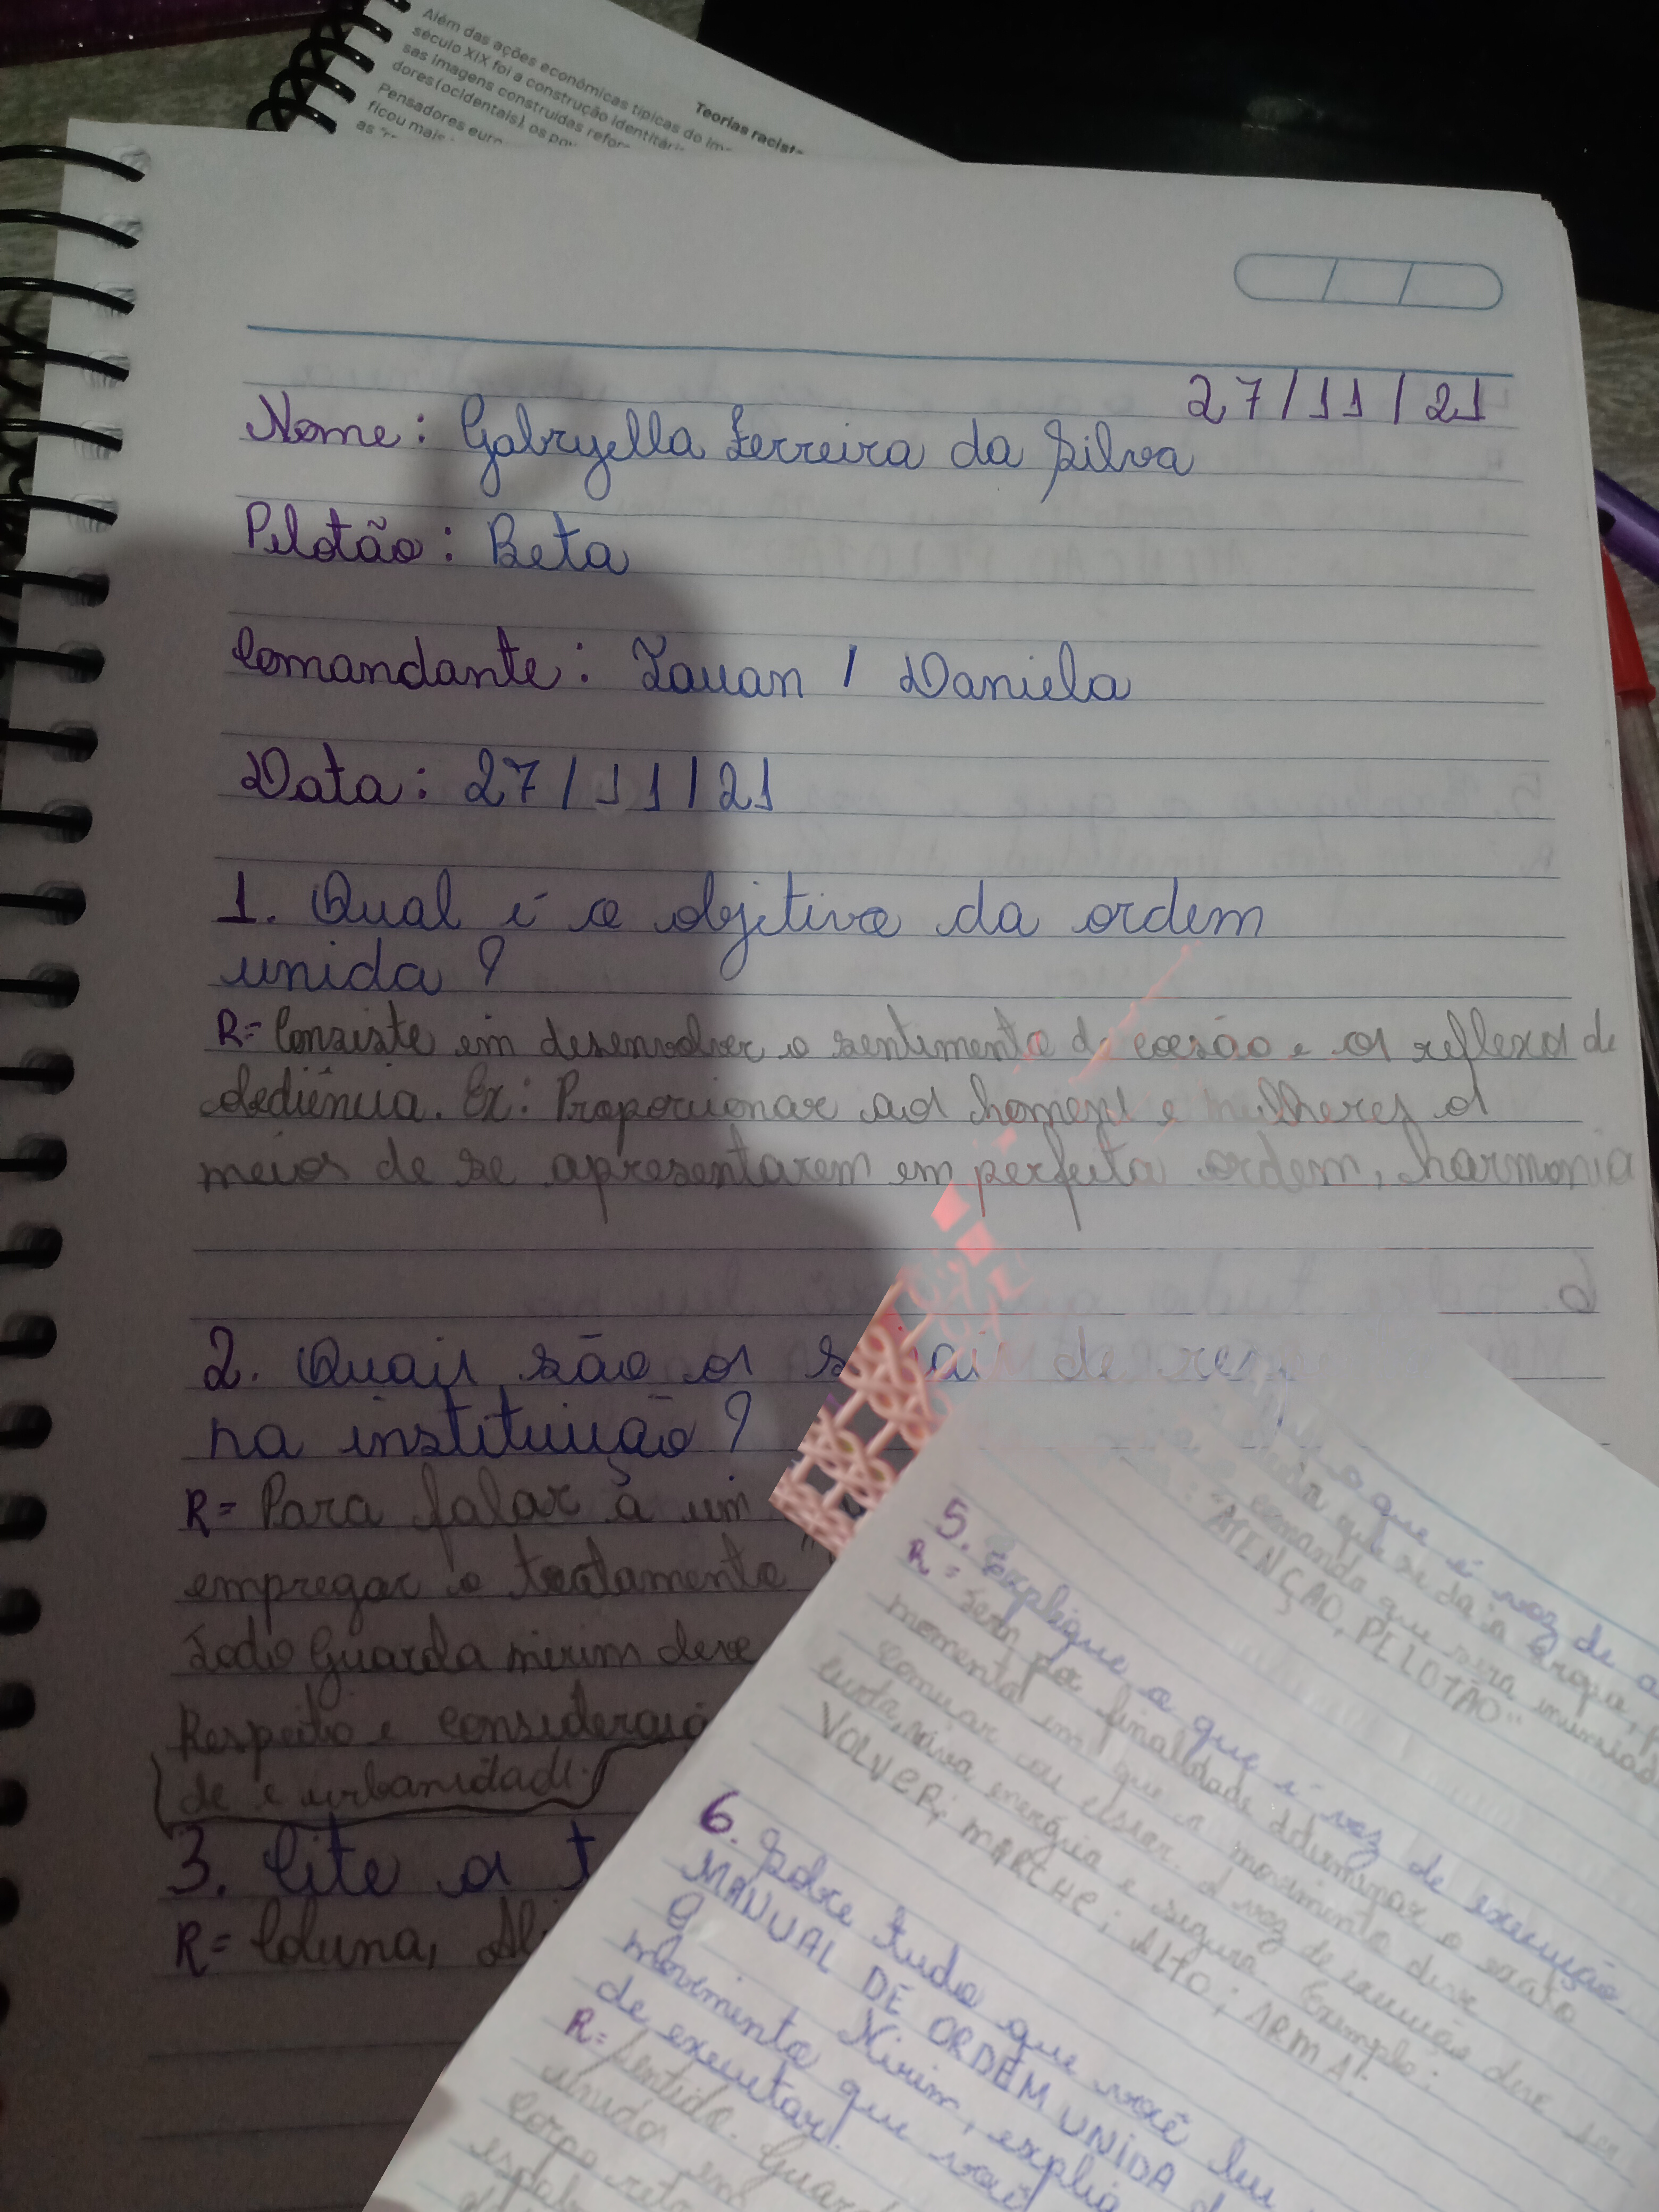 Além das ações econômicas típicas do im
século XIX foi a construção identitári
sas imagens construídas refor
dores (ocidentais), os po
Pensadores euro
ficou mais
as
Teorias racist
27/11/21
Nome: Gabryella Ferreira da Silva
Pelotão: Beta
Comandante: Tauan / Daniela
Data: 27/11/21
1. Qual é o objetivo da ordem
unida?
R= Consiste em desenvolver o sentimento de coesão e os reflexos de
obediência. Ex: Proporcionar aos homens e mulheres os
meios de se apresentarem em perfeita ordem, harmonia
2. Quais são os sinais de res
na instituição?
R= Para falar à um
empregar o tratamento "
Todo Guarda mirim deve
Respeito e consideraçã
de e urbanidade.
3. Cite os t
R= Coluna,
que é voz de a
que se da a tropa,
comando que sera inunciado
"ATENÇÃO, PELOTÃO"
5. Explique o que é voz de execução.
R= Tem por finalidade determinar o exato
momento em que o movimento deve
começar ou cessar. A voz de execução deve ser
curta, viva, enérgica e segura. Exemplo:
VOLVER; MARCHE; ALTO; ARMA!
6. Sobre tudo que você leu
MANUAL DE ORDEM UNIDA d
G. Mirim, expliq
movimento que você
de executar!
R= Sentido. Guar
unidos em
corpo reto
espal